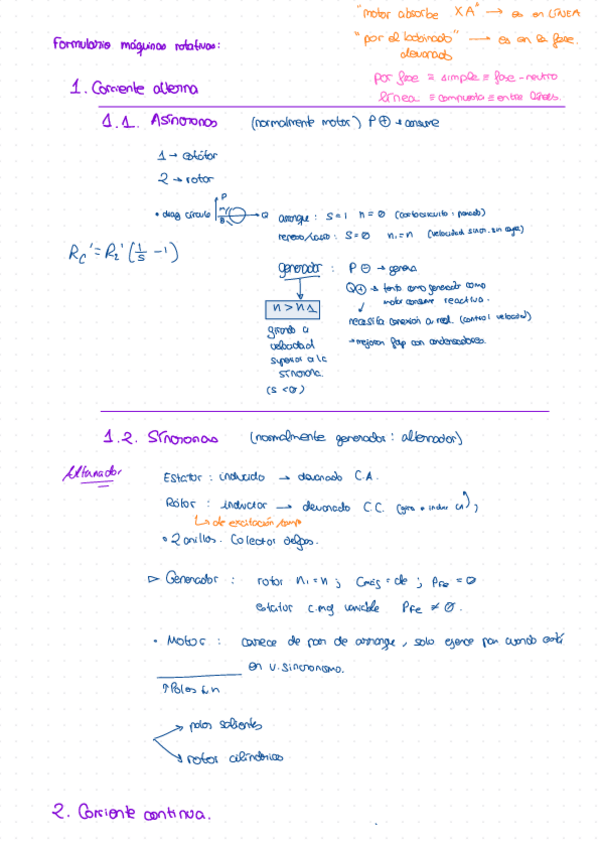 "motor absorbe XA" → es en LÍNEA
"por el bobinado" → es en la fase.
devanado
Formulario máquinas rotativas:
por fase ≡ simple ≡ fase-neutro
línea ≡ compuesta ≡ entre líneas.
1. Corriente alterna
1.1. Asíncronas (normalmente motor) P ⊕ → consume
1 → estátor
2 → rotor
• diag círculo P Q arranque: S=1 n=0 (cortocircuito: parado)
S=0 n₁=n (velocidad sincr. sin carga)
Rc' = R₂' (1/s − 1)
generador: P ⊖ → genera
Q⊕ → tanto como generador como
motor consume reactiva.
n > n₁
necesita conexión a red. (control velocidad)
→ mejoran fdp con condensadores.
girando a
velocidad
superior a la
síncrona.
(s < 0)
1.2. Síncronas (normalmente generador: alternador)
Alternador
Estator: inducido → devanado C.A.
Rotor: inductor → devanado C.C.
↳ de excitación
• 2 anillos. Colector delgas.
▷ Generador: rotor n₁=n ; ; PFe = 0
estator c.mg variable PFe ≠ 0.
• Motor: carece de par de arranque, solo ejerce par cuando está
en v. sincronismo.
↑Polos ↓n
→ polos salientes
→ rotor cilíndrico
2. Corriente continua.